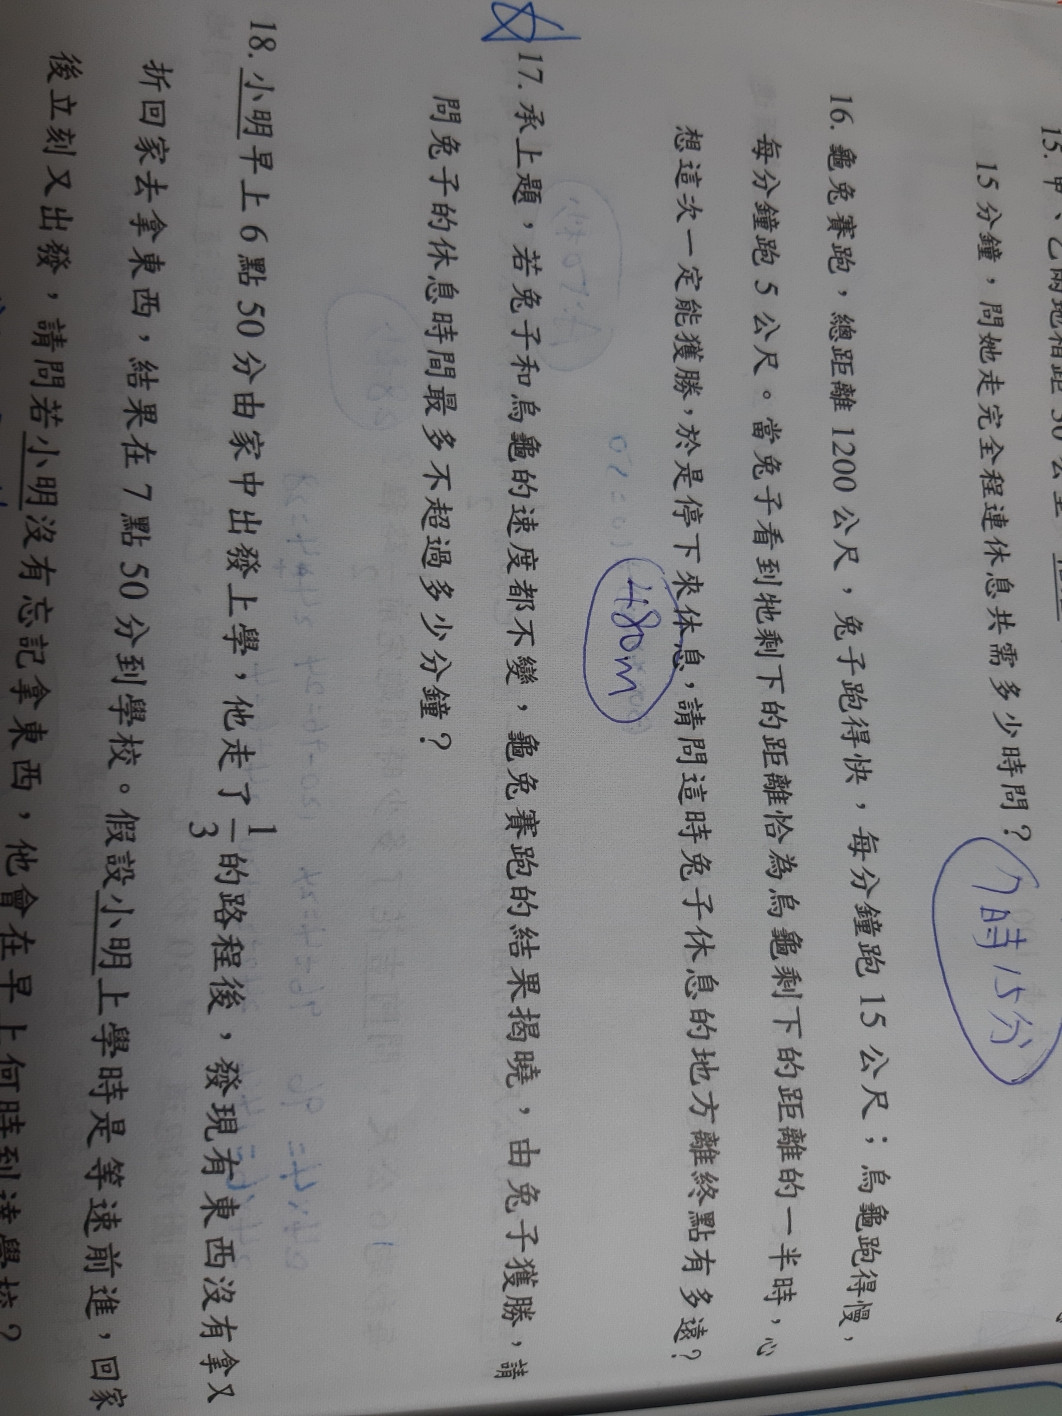 15. 甲、乙兩地相距 30 公里
15 分鐘，問她走完全程連休息共需多少時間？
7時15分
16. 龜兔賽跑，總距離 1200 公尺，兔子跑得快，每分鐘跑 15 公尺；烏龜跑得慢，
每分鐘跑 5 公尺。當兔子看到牠剩下的距離恰為烏龜剩下的距離的一半時，心
想這次一定能獲勝，於是停下來休息，請問這時兔子休息的地方離終點有多遠？
480m
17. 承上題，若兔子和烏龜的速度都不變，龜兔賽跑的結果揭曉，由兔子獲勝，請
問兔子的休息時間最多不超過多少分鐘？
18. 小明早上 6 點 50 分由家中出發上學，他走了 1/3 的路程後，發現有東西沒有拿又
折回家去拿東西，結果在 7 點 50 分到學校。假設小明上學時是等速前進，回家
後立刻又出發，請問若小明沒有忘記拿東西，他會在早上何時到達學校？